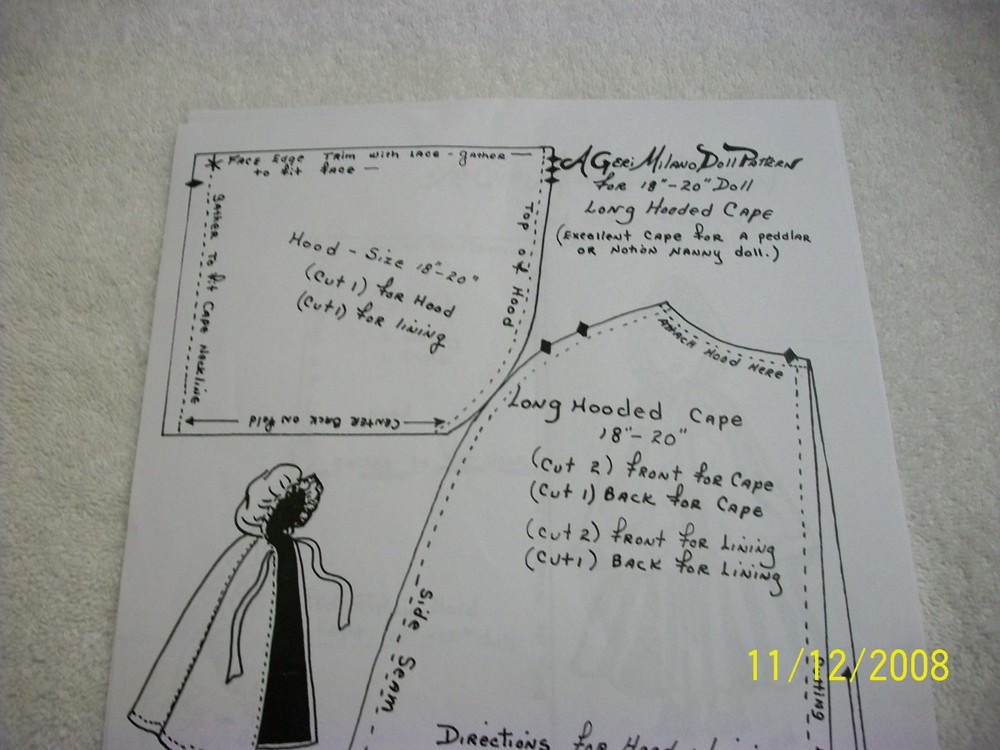 * FACE Edge TRIM with LACE - gather —
to fit face —
gather To fit Cape Neckline
Top of Hood
Hood - Size 18"-20"
(Cut 1) for Hood
(Cut 1) for lining
CENTER BACK on fold
A Geri Milano Doll Pattern
for 18"-20" Doll
Long Hooded Cape
(Excellent Cape for a peddlar
or Notion Nanny doll.)
ATTACH HOOD HERE
Long Hooded Cape
18"-20"
(Cut 2) Front for Cape
(Cut 1) Back for Cape
(Cut 2) Front for Lining
(Cut 1) Back for Lining
Side Seam
Directions for
11/12/2008